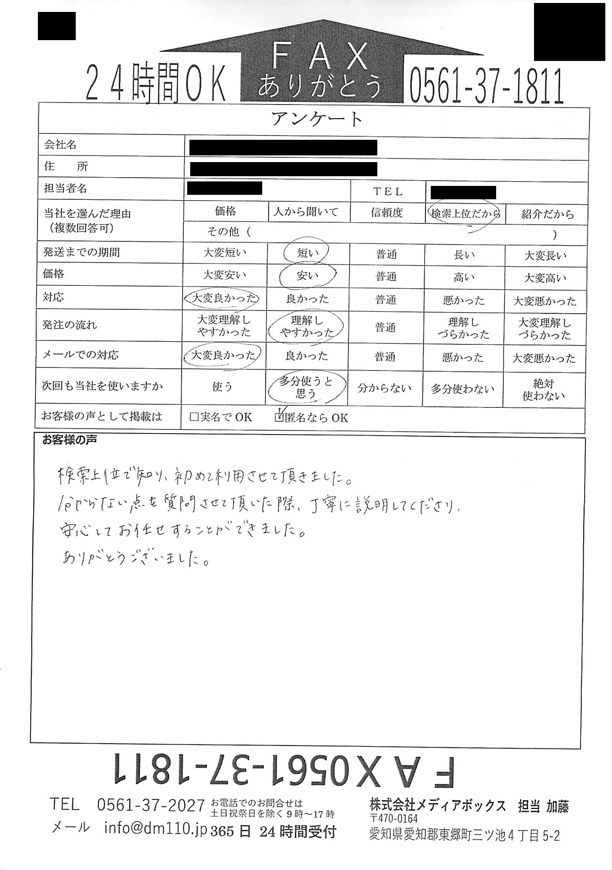 FAX
ありがとう
24時間OK
0561-37-1811
アンケート
会社名
住　所
担当者名 TEL
当社を選んだ理由 (複数回答可) 価格 人から聞いて 信頼度 検索上位だから 紹介だから
その他 ( )
発送までの期間 大変短い 短い 普通 長い 大変長い
価格 大変安い 安い 普通 高い 大変高い
対応 大変良かった 良かった 普通 悪かった 大変悪かった
発注の流れ 大変理解しやすかった 理解しやすかった 普通 理解しづらかった 大変理解しづらかった
メールでの対応 大変良かった 良かった 普通 悪かった 大変悪かった
次回も当社を使いますか 使う 多分使うと思う 分からない 多分使わない 絶対使わない
お客様の声として掲載は □実名でOK ☑匿名ならOK
お客様の声
検索上位で知り、初めて利用させて頂きました。
分からない点を質問させて頂いた際、丁寧に説明してくださり、
安心してお任せすることができました。
ありがとうございました。
FAX0561-37-1811
TEL 0561-37-2027 お電話でのお問合せは 土日祝祭日を除く9時～17時
メール info@dm110.jp 365日 24時間受付
株式会社メディアボックス 担当 加藤
〒470-0164
愛知県愛知郡東郷町三ツ池4丁目5-2